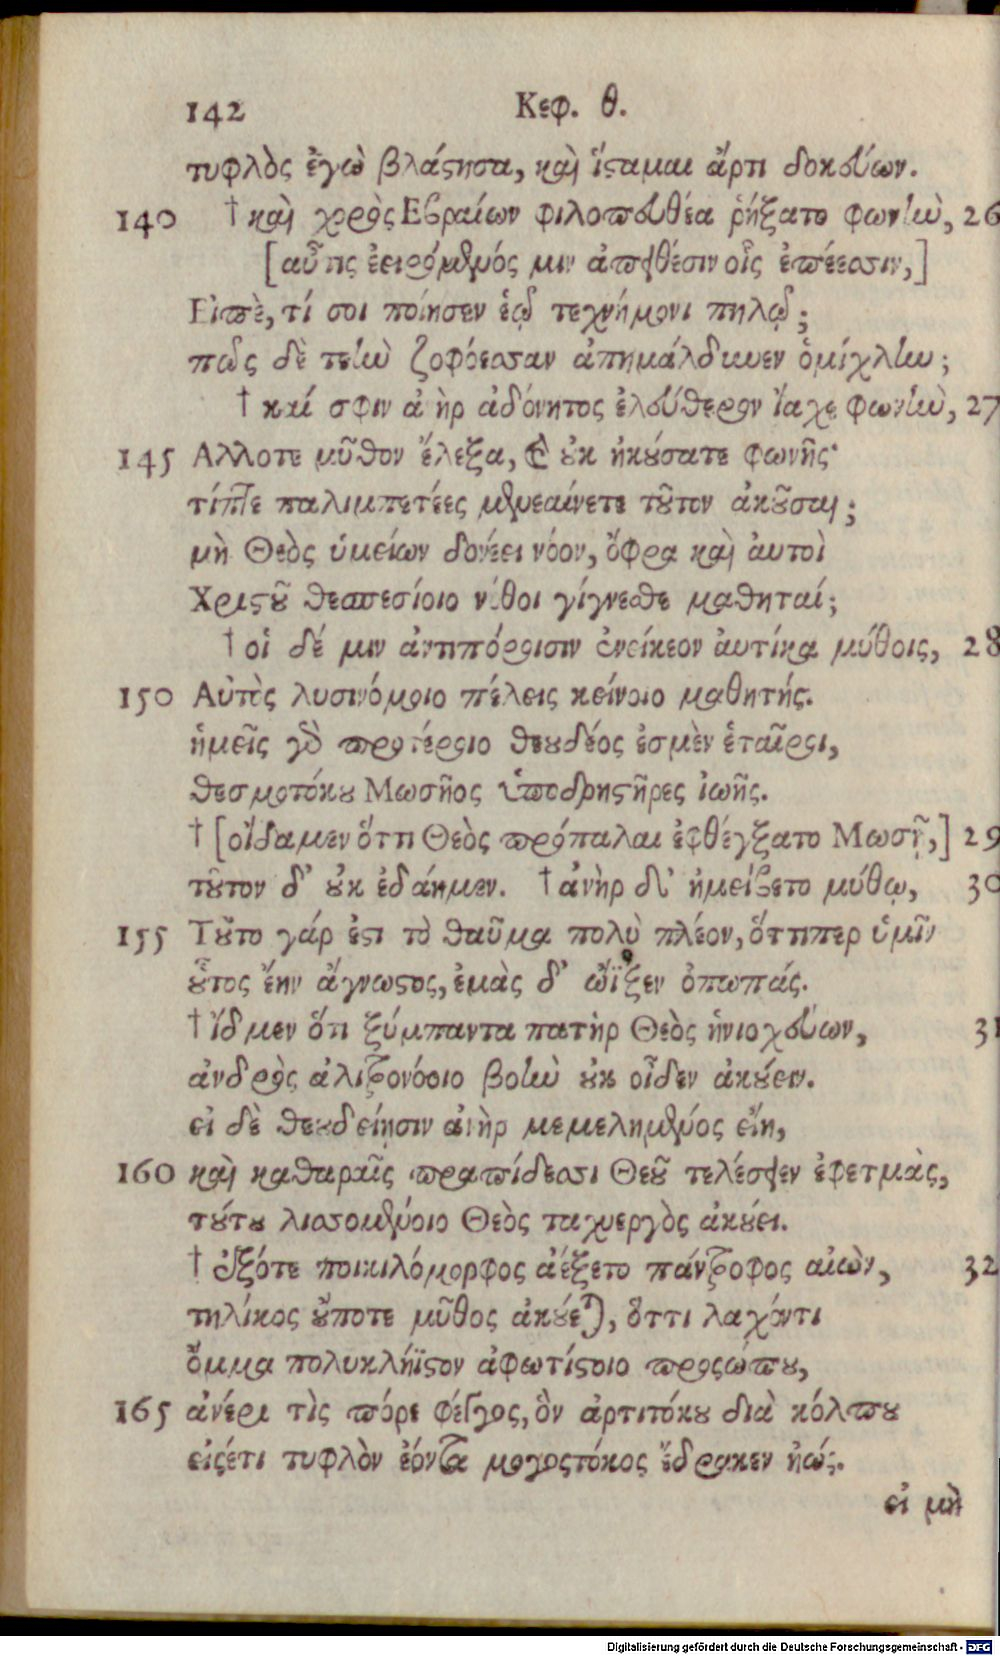 142 Κεφ. θ.
τυφλὸς ἐγὼ βλάστησα, καὶ ἵσταμαι ἄρτι δοκεύων.
140 † καὶ χορὸς Εβραίων φιλοπευθέα ῥήξατο φωνὴν, 26
[αὖτις ἐειρόμενός μιν ἀπειθέσιν οἷς ἐπέεσσιν,]
Εἰπὲ, τί σοι ποίησεν ἑῷ τεχνήμονι πηλῷ;
πῶς δὲ τεὴν ζοφόεσσαν ἀπημάλδυνεν ὀμίχλην;
† καί σφιν ἀνὴρ ἀδόνητος ἐλεύθερον ἴαχε φωνὴν, 27
145 Αλλοτε μῦθον ἔλεξα, καὶ οὐκ ἠκούσατε φωνῆς·
τίπτε παλιμπετέες μενεαίνετε τοῦτον ἀκοῦσαι;
μὴ Θεὸς ὑμείων δονέει νόον, ὄφρα καὶ ἀυτοὶ
Χριστοῦ θεσπεσίοιο νόθοι γίγνεσθε μαθηταί;
† οἱ δέ μιν ἀντιπόροισιν ἐνείκεον ἀυτίκα μύθοις, 28
150 Αὐτὸς λυσινόμοιο πέλεις κείνοιο μαθητής.
ἡμεῖς γὰρ προτέροιο θεουδέος ἐσμὲν ἑταῖροι,
θεσμοτόκου Μωσῆος ὑποδρηστῆρες ἰωῆς.
† [οἴδαμεν ὅττι Θεὸς πρόπαλαι ἐφθέγξατο Μωσῇ,] 29
τοῦτον δ' οὐκ ἐδάημεν. † ἀνὴρ δ' ἠμείβετο μύθῳ, 30
155 Τοῦτο γάρ ἐστι τὸ θαῦμα πολὺ πλέον, ὅττιπερ ὑμῖν
οὗτος ἔην ἄγνωστος, ἐμὰς δ' ὤϊξεν ὀπωπάς.
† ἴδμεν ὅτι ξύμπαντα πατὴρ Θεὸς ἡνιοχεύων, 31
ἀνδρὸς ἀλιτρονόοιο βοὴν οὐκ οἶδεν ἀκούειν.
εἰ δὲ θεουδείησιν ἀνὴρ μεμελημένος εἴη,
160 καὶ καθαραῖς πραπίδεσσι Θεοῦ τελέσειεν ἐφετμὰς,
τούτου λισσομένοιο Θεὸς ταχυεργὸς ἀκούει.
† ἐξότε ποικιλόμορφος ἀέξετο πάντροφος αἰὼν, 32
τηλίκος οὔποτε μῦθος ἀκούεται, ὅττι λαχόντι
ὄμμα πολυκλήϊστον ἀφωτίστοιο προσώπου,
165 ἀνέρι τὶς πόρε φέγγος, ὃν ἀρτιτόκου διὰ κόλπου
εἰσέτι τυφλὸν ἐόντα μογοστόκος ἔδρακεν ἠώς.
εἰ μὴ
Digitalisierung gefördert durch die Deutsche Forschungsgemeinschaft - DFG